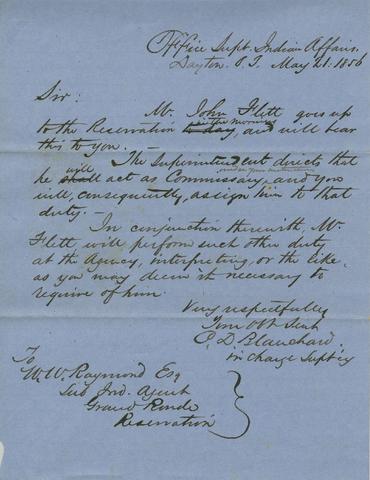 Office Supt. Indian Affairs.
Dayton. O.T. May 21. 1856
Sir:
Mr. John Flett goes up
in the morning
to the Reservation to day, and will bear
this to you. The Superintendent directs that
will under your instructions
he shall act as Commissary, and you
will, consequently, assign him to that
duty. -
In conjunction therewith, Mr.
Flett will perform such other duty
at the Agency, interpreting, or the like,
as you may deem it necessary to
require of him.
Very respectfully
Your Obt Servt
C. D. Blanchard.
in charge Suptcy
To
W. W. Raymond Esq
Sub Ind. Agent
Grand Ronde
Reservation